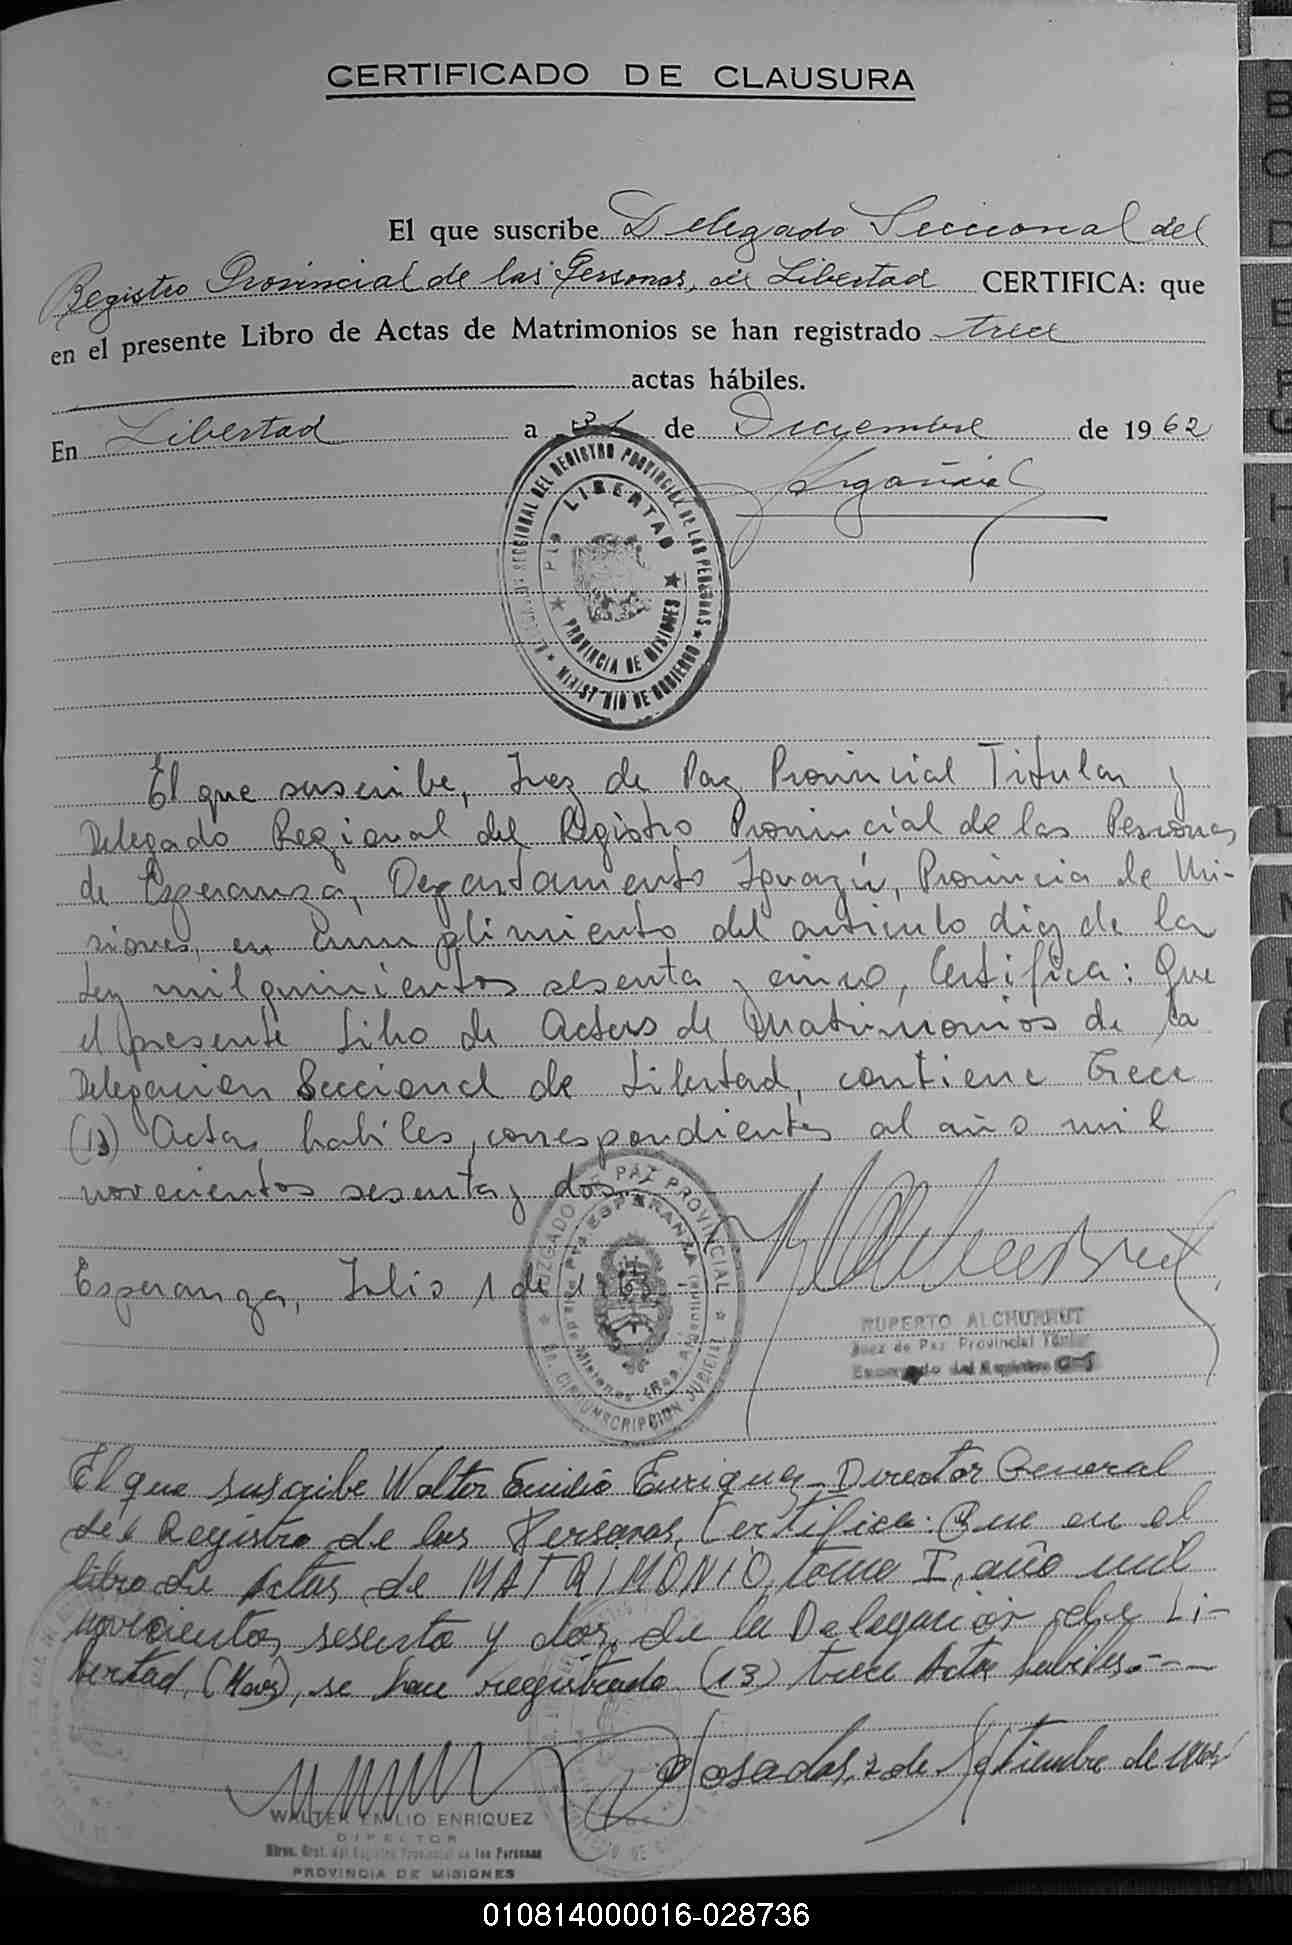 CERTIFICADO DE CLAUSURA
El que suscribe Delegado Seccional del
Registro Provincial de las Personas, de Libertad CERTIFICA: que
en el presente Libro de Actas de Matrimonios se han registrado trece
actas hábiles.
En Libertad a 31 de Diciembre de 1962
SECCIONAL DEL REGISTRO PROVINCIAL DE LAS PERSONAS
LIBERTAD
PROVINCIA DE MISIONES
MINISTERIO DE GOBIERNO
El que suscribe, Juez de Paz Provincial Titular y
Delegado Regional del Registro Provincial de las Personas
de Esperanza, Departamento Iguazú, Provincia de Mi-
siones, en cumplimiento del articulo diez de la
Ley mil quinientos sesenta y cinco, Certifica: Que
el presente Libro de Actas de Matrimonios de la
Delegacion Seccional de Libertad, contiene trece
(13) Actas habiles, correspondientes al año mil
novecientos sesenta y dos.
JUZGADO DE PAZ PROVINCIAL
ESPERANZA
2a. CIRCUNSCRIPCION JUDICIAL
Esperanza, Julio 1 de 1963.
RUPERTO ALCHURRUT
Juez de Paz Provincial Titular
Encargado del Registro
El que suscribe Walter Emilio Enriquez - Director General
del Registro de las Personas, Certifica: Que en el
libro de Actas de MATRIMONIO, tomo I, año mil
novecientos sesenta y dos, de la Delegación de Li-
bertad, se han registrado (13) trece Actas habiles.---
Posadas, 2 de Septiembre de
WALTER EMILIO ENRIQUEZ
DIRECTOR
Direc. Gral. del Registro Provincial de las Personas
PROVINCIA DE MISIONES
010814000016-028736